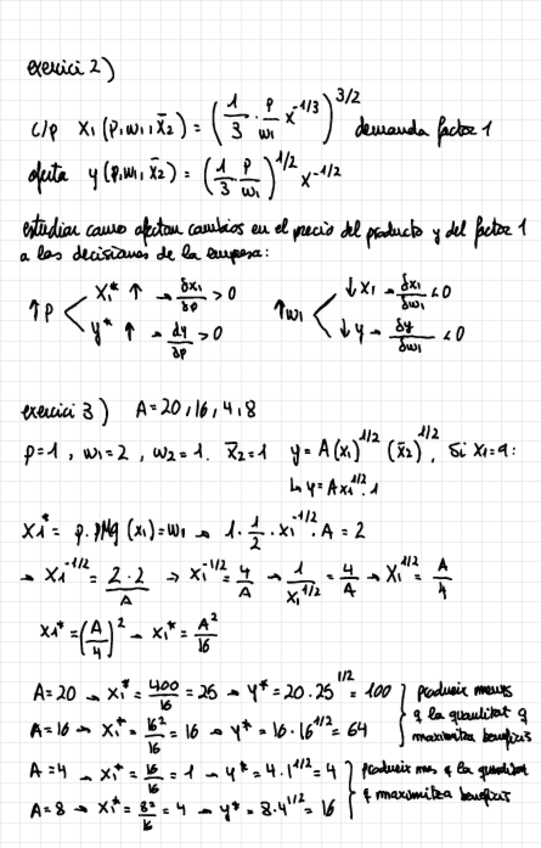 exercici 2)
c/p x₁(p,w₁,x̄₂) = (1/3 · p/w₁ x^-1/3)^3/2 demanda factor 1
oferta y(p,w₁,x̄₂) = (1/3 · p/w₁)^1/2 x^-1/2
estudiar como afectan cambios en el precio del producto y del factor 1
a las decisiones de la empresa:
↑p < x₁* ↑ → δx₁/δp > 0
y* ↑ → dy/∂p > 0
↑w₁ < ↓x₁ → δx₁/δw₁ < 0
↓y → δy/δw₁ < 0
exercici 3) A=20,16,4,8
p=1, w₁=2, w₂=1. x̄₂=1 y=A(x₁)^1/2 (x̄₂)^1/2. Si x₁=9:
↳ y=Ax₁^1/2·1
x₁* = p·PMg(x₁)=w₁ → 1·1/2·x₁^-1/2·A=2
→ x₁^-1/2 = 2·2/A → x₁^-1/2 = 4/A → 1/x₁^1/2 = 4/A → x₁^1/2 = A/4
x₁* = (A/4)^2 → x₁* = A^2/16
A=20 → x₁* = 400/16 = 25 → y* = 20·25^1/2 = 100
A=16 → x₁* = 16^2/16 = 16 → y* = 16·16^1/2 = 64
produeix menys
q la quantitat q
maximitza beneficis
A=4 → x₁* = 16/16 = 1 → y* = 4·1^1/2 = 4
A=8 → x₁* = 8^2/16 = 4 → y* = 8·4^1/2 = 16
produeix mes q la quantitat
q maximitza beneficis